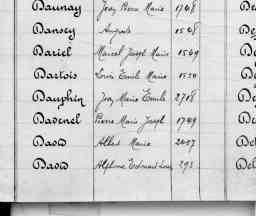 Daunay Jean Pierre Marie 1768
Dansey Auguste 1548
Dariel Marcel Joseph Marie 1549
Dartois Louis Emile Marie 1550
Dauphin Marie Emile 2718
Davenel Pierre Marie Joseph 1749
David Albert Marie
David Alphonse Edmond 293